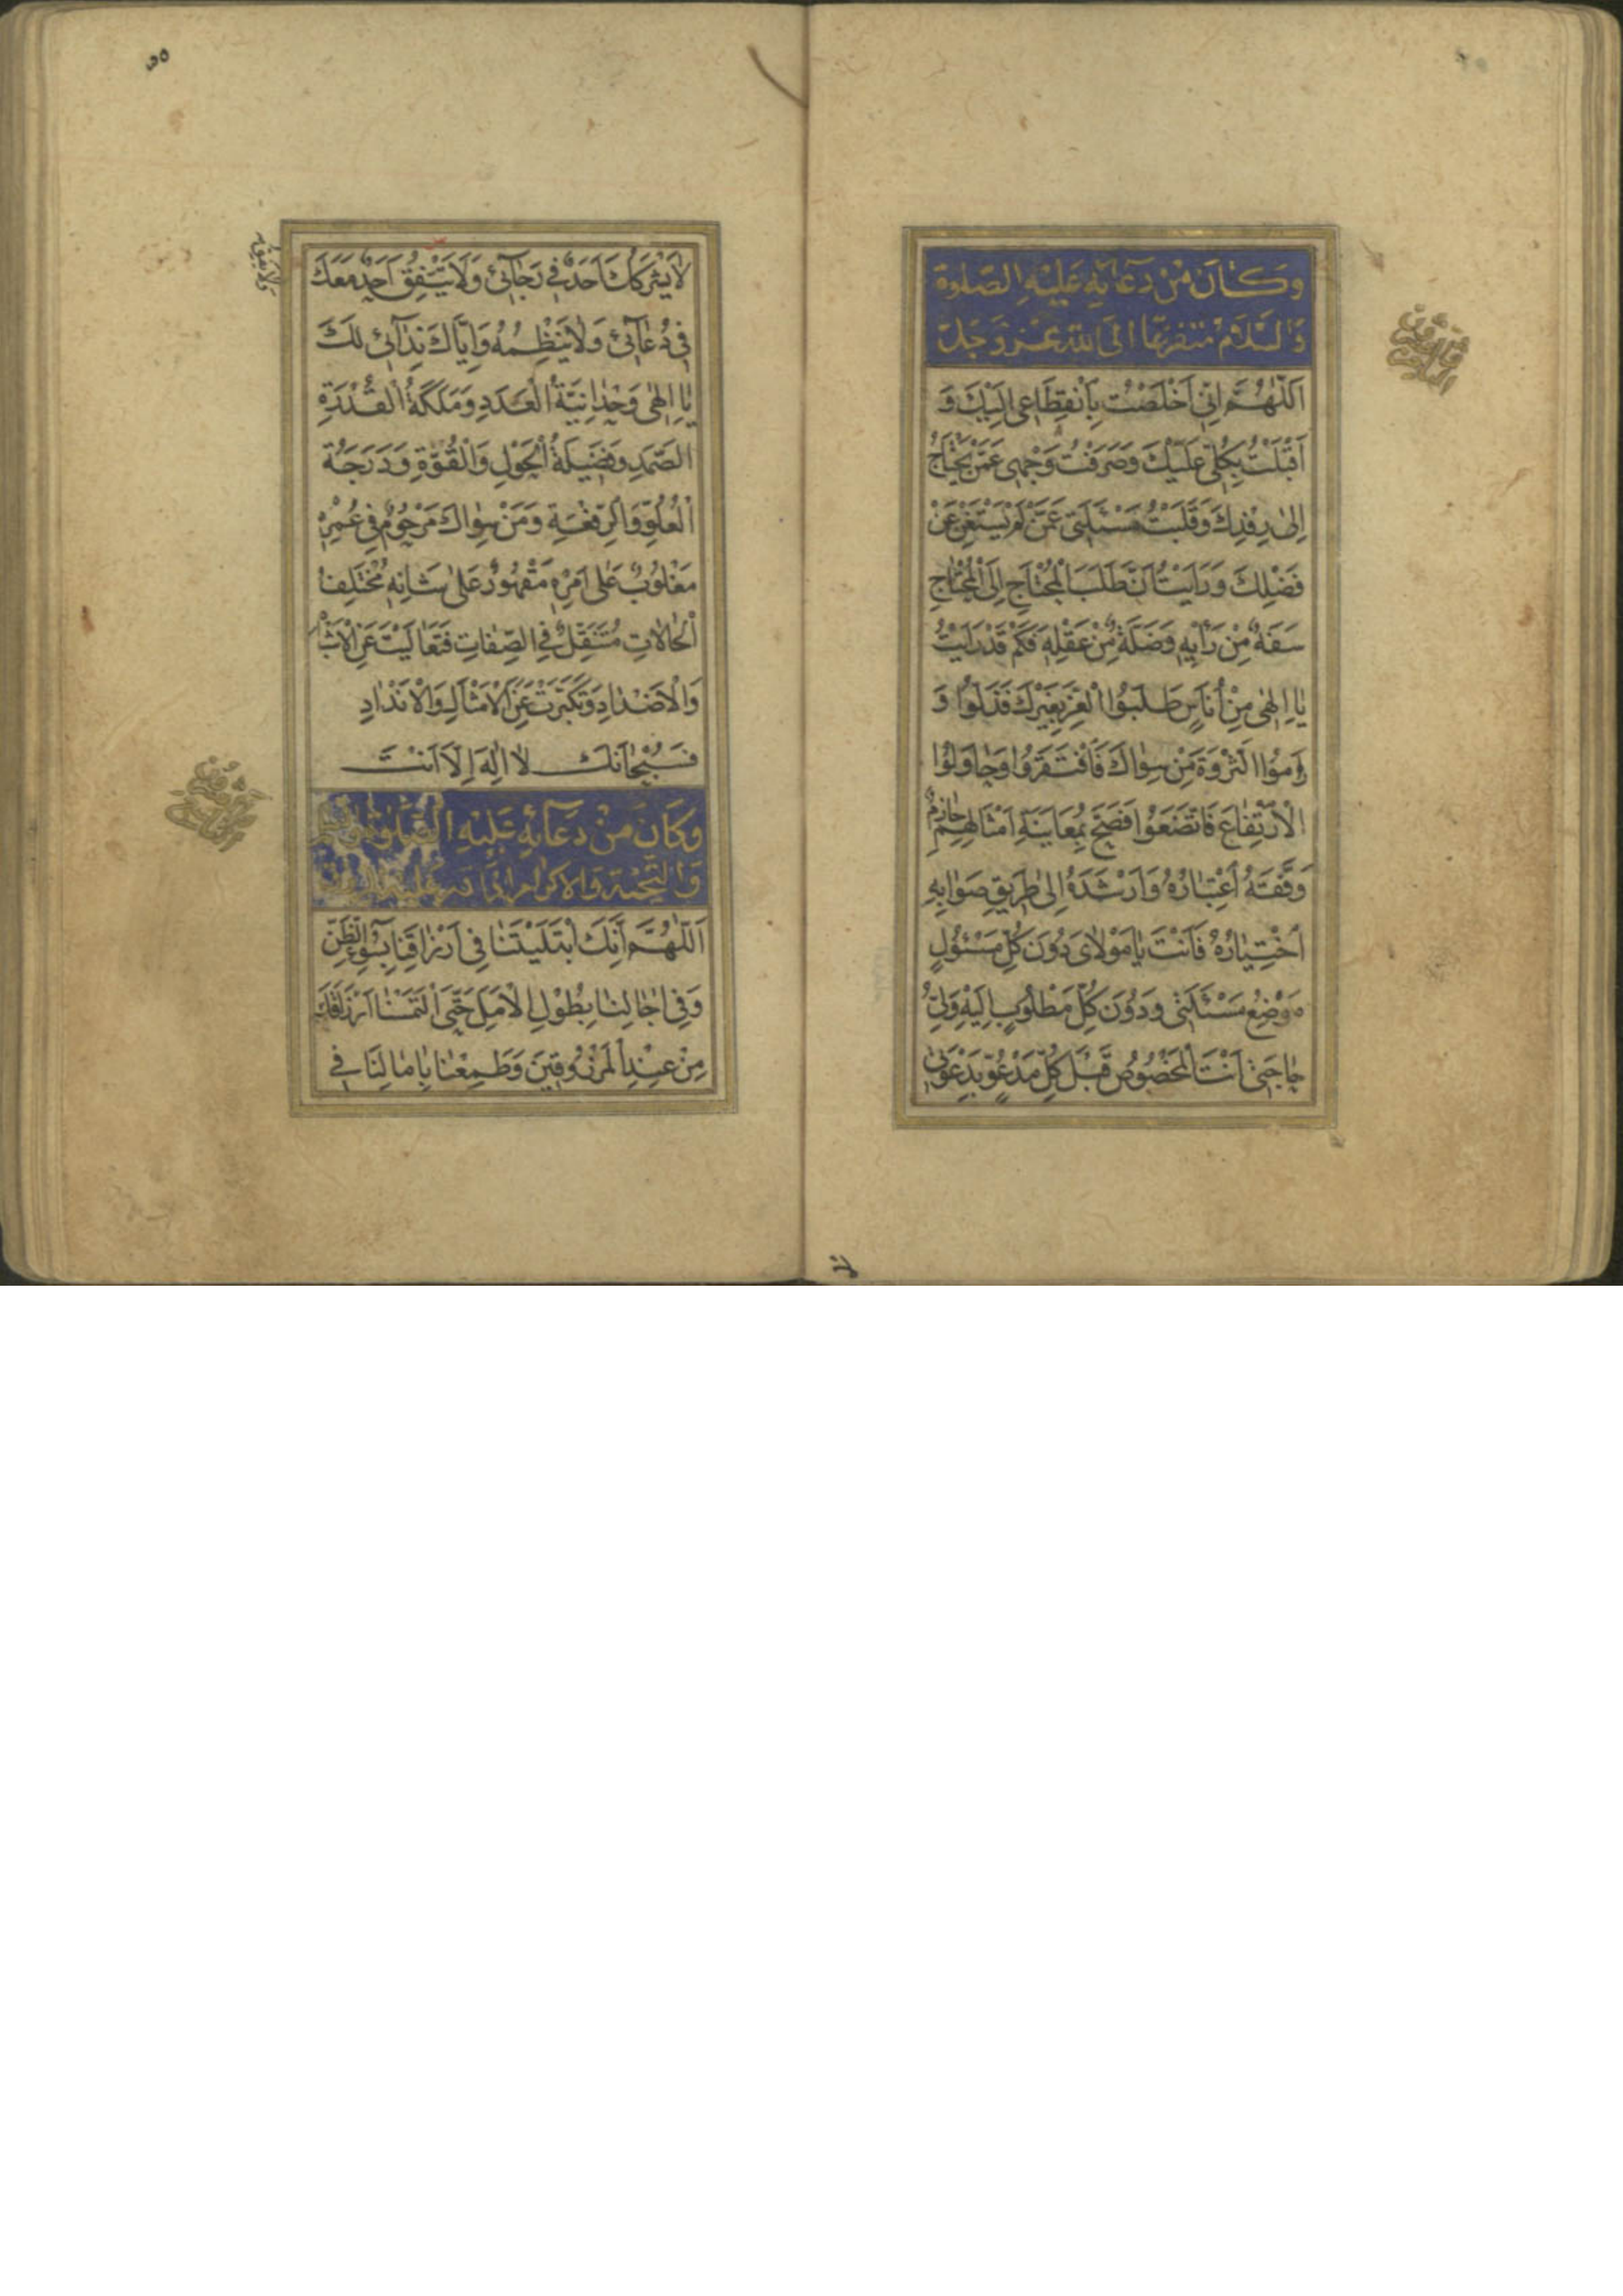 وَكَانَ مِنْ دُعَائِهِ عَلَيْهِ الصَّلوةُ
وَالسَّلَامُ مُتَفَزِّعًا اِلَى اللهِ عَزَّ وَجَلَّ
اَللّٰهُمَّ اِنِّي اَخْلَصْتُ بِاَنْقِطَاعِي اِلَيْكَ وَ
اَقْبَلْتُ بِكُلِّي عَلَيْكَ وَصَرَفْتُ وَجْهِي عَمَّنْ يَحْتَاجُ
اِلىٰ رِفْدِكَ وَقَلَبْتُ مَسْئَلَتِي عَمَّنْ لَمْ يَسْتَغْنِ عَنْ
فَضْلِكَ وَرَاَيْتُ اَنَّ طَلَبَ الْمُحْتَاجِ اِلَى الْمُحْتَاجِ
سَفَهٌ مِنْ رَأْيِهِ وَضَلَّةٌ مِنْ عَقْلِهِ فَكَمْ قَدْ رَاَيْتُ
يَا اِلٰهِي مِنْ اُنَاسٍ طَلَبُوا الْعِزَّ بِغَيْرِكَ فَذَلُّوا وَ
رَامُوا الثَّرْوَةَ مِنْ سِوَاكَ فَافْتَقَرُوا وَحَاوَلُوا
الْاِرْتِفَاعَ فَاتَّضَعُوا فَصَحَّ بِمُعَايَنَةِ اَمْثَالِهِمْ حَازِمٌ
وَفَّقَهُ اعْتِبَارُهُ وَاَرْشَدَهُ اِلىٰ طَرِيقِ صَوَابِهِ
اخْتِيَارُهُ فَاَنْتَ يَا مَوْلَايَ دُونَ كُلِّ مَسْئُولٍ
مَوْضِعُ مَسْئَلَتِي وَدُونَ كُلِّ مَطْلُوبٍ اِلَيْهِ وَلِيُّ
حَاجَتِي اَنْتَ الْمَخْصُوصُ قَبْلَ كُلِّ مَدْعُوٍّ بِدَعْوَتِي
لَا يَشْرَكُكَ اَحَدٌ فِي رَجَائِي وَلَا يَتَّفِقُ اَحَدٌ مَعَكَ
فِي دُعَائِي وَلَا يَنْظِمُهُ وَاِيَّاكَ نِدَائِي لَكَ
يَا اِلٰهِي وَحْدَانِيَّةُ الْعَدَدِ وَمَلَكَةُ الْقُدْرَةِ
الصَّمَدِ وَفَضِيلَةُ الْحَوْلِ وَالْقُوَّةِ وَدَرَجَةُ
الْعُلُوِّ وَالرِّفْعَةِ وَمَنْ سِوَاكَ مَرْحُومٌ فِي عُمْرِهِ
مَغْلُوبٌ عَلىٰ اَمْرِهِ مَقْهُورٌ عَلىٰ شَانِهِ مُخْتَلِفُ
الْحَالَاتِ مُتَنَقِّلٌ فِي الصِّفَاتِ فَتَعَالَيْتَ عَنِ الْاَشْبَاهِ
وَالْاَضْدَادِ وَتَكَبَّرْتَ عَنِ الْاَمْثَالِ وَالْاَنْدَادِ
فَسُبْحَانَكَ لَا اِلٰهَ اِلَّا اَنْتَ
وَكَانَ مِنْ دُعَائِهِ عَلَيْهِ الصَّلوةُ
وَالتَّحِيَّةُ وَالْاِكْرَامُ اِذَا قُتِرَ عَلَيْهِ الرِّزْقُ
اَللّٰهُمَّ اِنَّكَ ابْتَلَيْتَنَا فِي اَرْزَاقِنَا بِسُوءِ الظَّنِّ
وَفِي اٰجَالِنَا بِطُولِ الْاَمَلِ حَتَّى الْتَمَسْنَا اَرْزَاقَكَ
مِنْ عِنْدِ الْمَرْزُوقِينَ وَطَمِعْنَا بِاٰمَالِنَا فِي